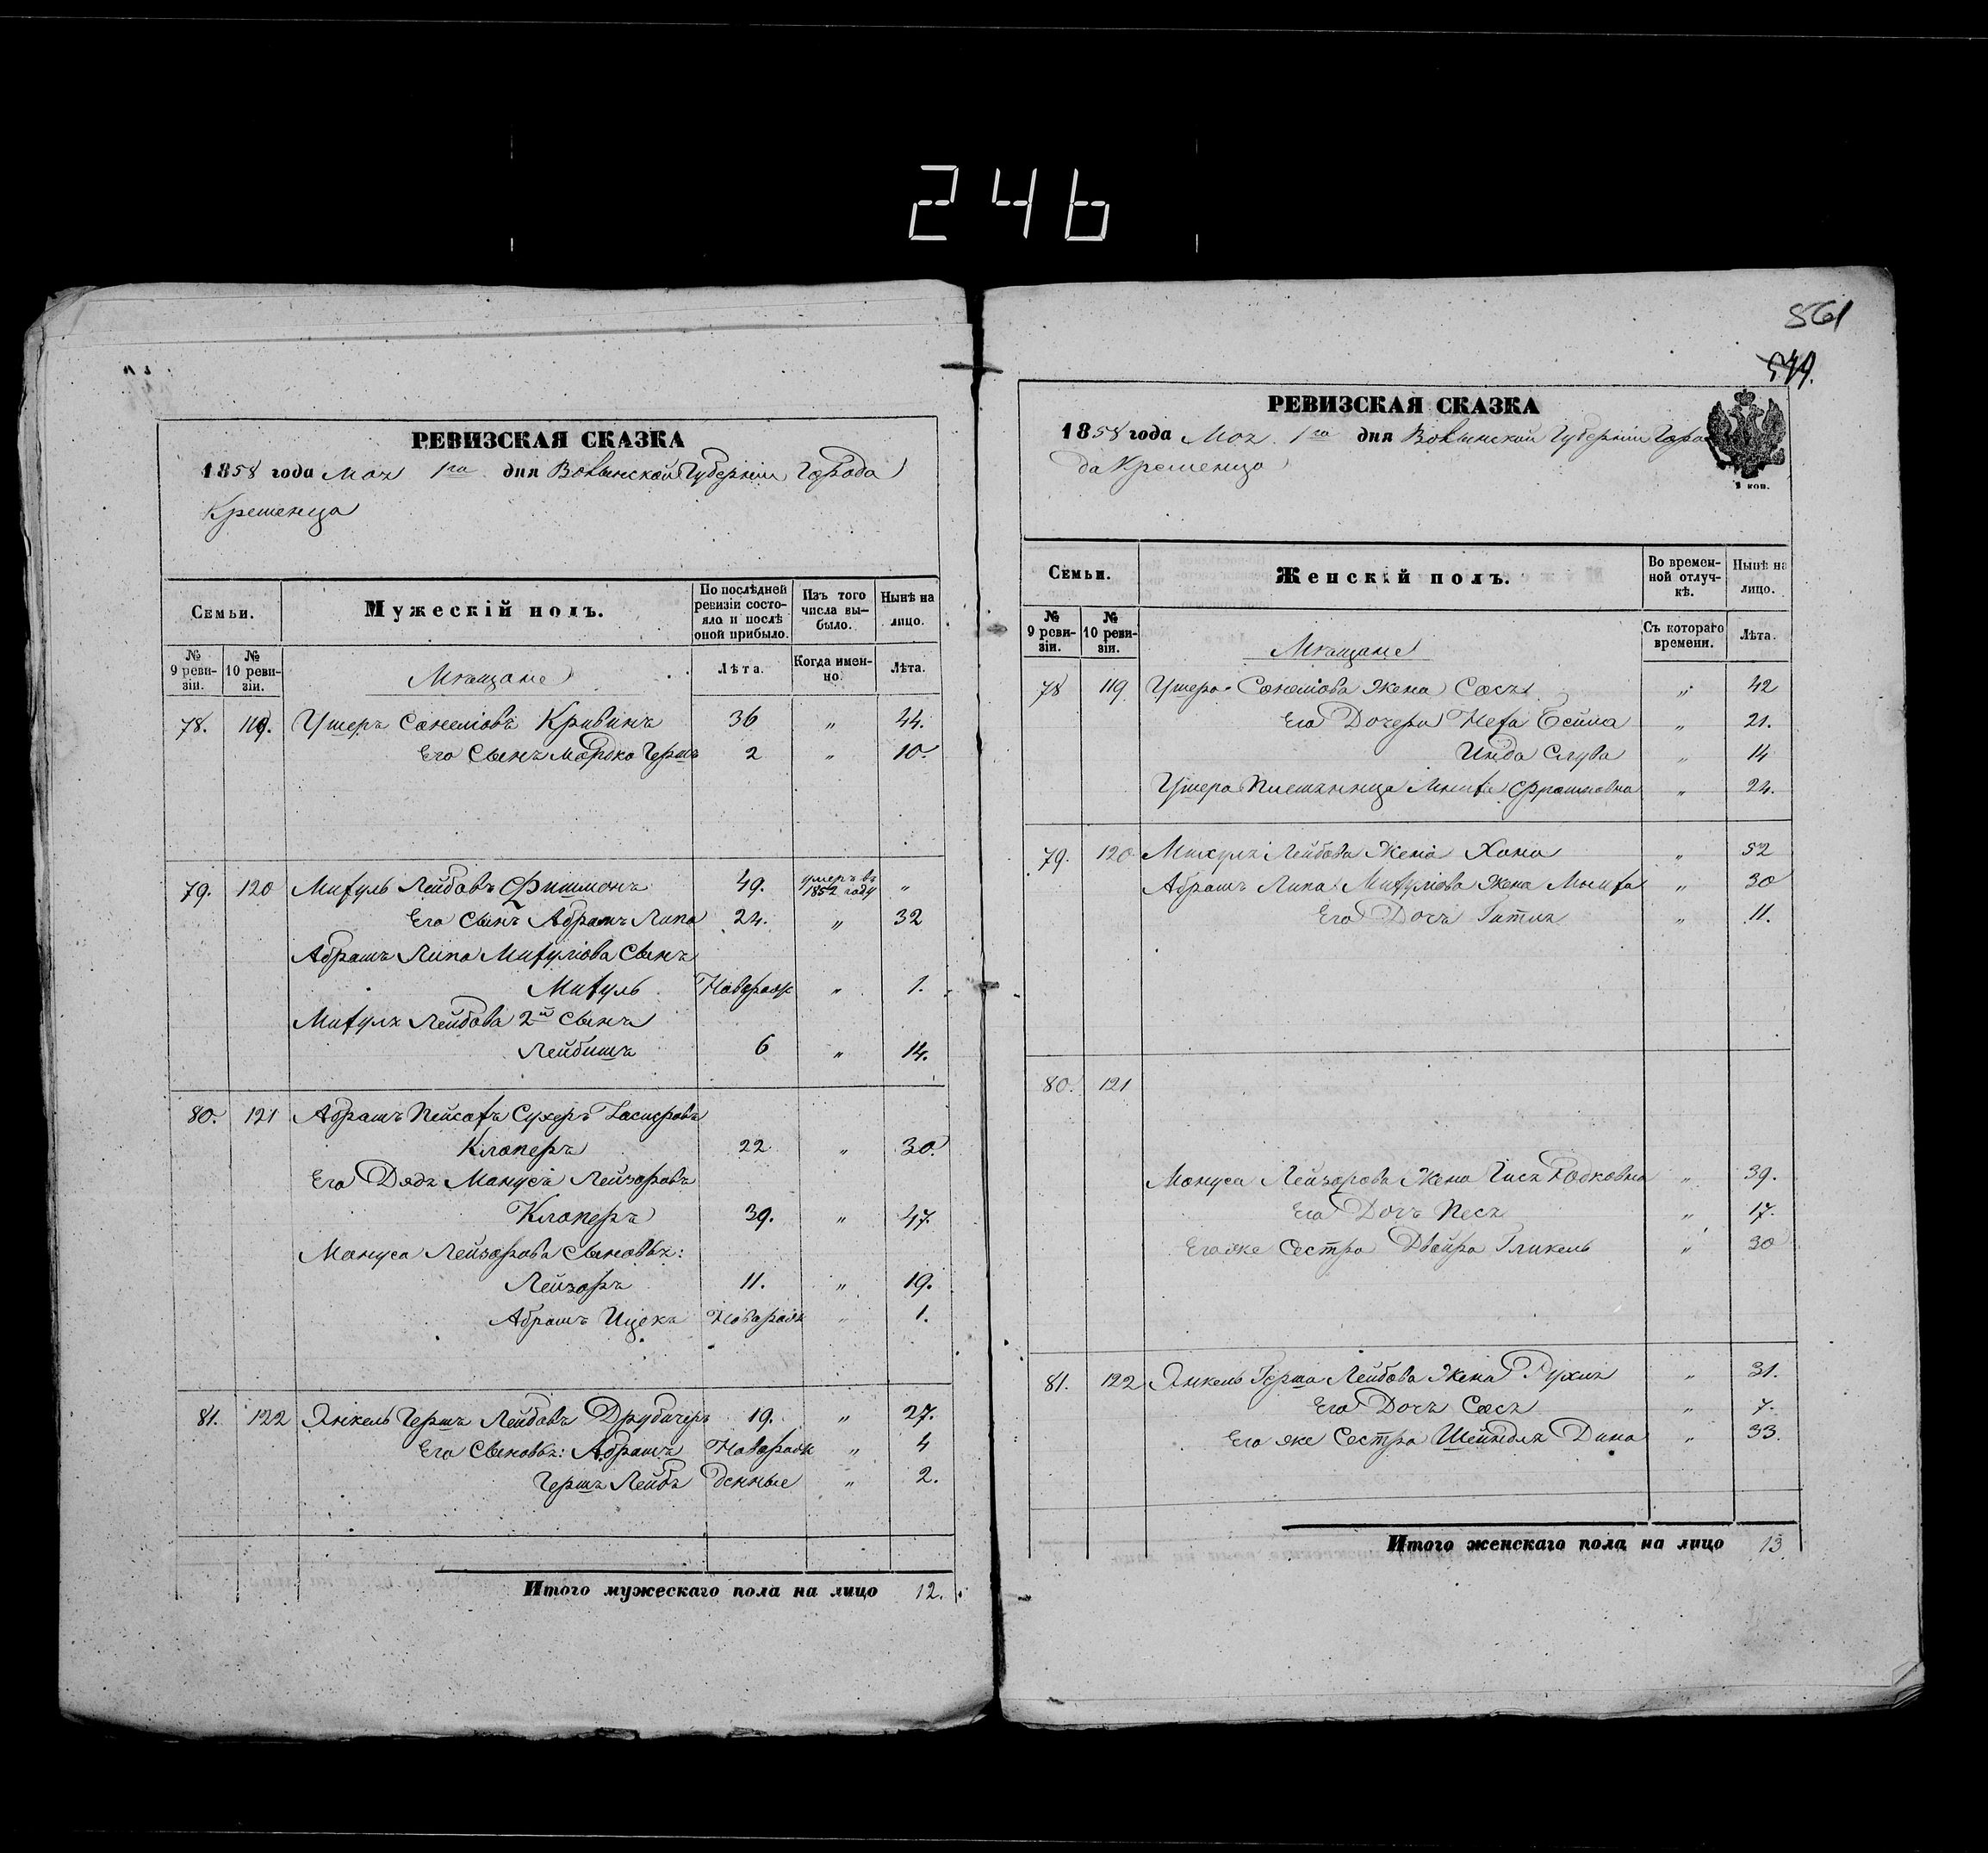 246
РЕВИЗСКАЯ СКАЗКА
1858 года Мая 1го дня Волынской Губерніи Города
Кременца
Семьи.
Мужескій полъ.
По послѣдней ревизіи состояло и послѣ оной прибыло.
Изъ того числа выбыло.
Нынѣ на лицо.
№ 9 ревизіи.
№ 10 ревизіи.
Мѣщане
Лѣта.
Когда именно.
Лѣта.
78. 119. Ушеръ Санеліовъ Кривинъ 36 „ 44.
Его Сынъ Мордко Гершъ 2 „ 10.
79. 120 Михуль Лейбовъ Фишманъ 49. умеръ въ 1852 году „
Его Сынъ Абрамъ Липа 24. „ 32
Абрамъ Липа Михуліова Сынъ
Михуль Новорож „ 1.
Михуля Лейбова 2й Сынъ
Лейбишъ 6 „ 14.
80. 121 Абрамъ Пейсахъ Сухеръ
Клаперъ 22 „ 30.
Его Дядя Манусъ Лейзоровъ
Клаперъ 39. „ 47
Мануса Лейзорова Сыновья:
Лейзоръ 11. „ 19.
Абрамъ Ицекъ Новорож „ 1.
81. 122 Янкель Гершъ Лейбовъ Друбичеръ 19. „ 27.
Его Сыновья: Абрамъ Новорож „ 4
Гершъ Лейбъ денные „ 2.
Итого мужескаго пола на лицо 12.
861
РЕВИЗСКАЯ СКАЗКА
1858 года Мая 1го дня Волынской Губерніи Горо
да Кременца
1 коп.
Семьи.
Женскій полъ.
Во временной отлучкѣ.
Нынѣ на лицо.
№ 9 ревизіи.
№ 10 ревизіи.
Мѣщане
Съ котораго времени.
Лѣта.
78 119 Ушера Санеліова Жена Сося „ 42
Его Дочери Неха Бейла „ 21.
Инда Слува „ 14
Ушера Племянница „ 24.
79. 120 Михуля Лейбова Жена Хана „ 52
Абрамъ Липа Михуліова Жена Мниха „ 30
Его Дочь Гитля „ 11.
80. 121
Мануса Лейзорова Жена „ 39.
Его Дочь Песя „ 17.
Егоже Сестра Двойра Гликель „ 30
81. 122 Янкель Герша Лейбова Жена Рухля „ 31.
Его Дочь Сося „ 7.
Его же Сестра Шейндля Дина „ 33.
Итого женскаго пола на лицо 13.